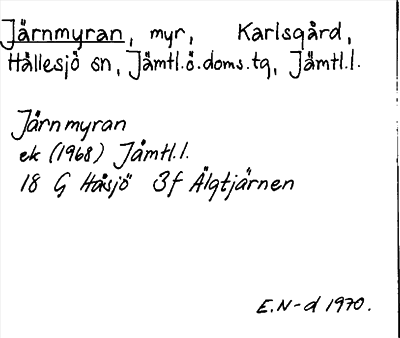 Järnmyran, myr, Karlsgård,
Hållesjö sn, Jämtl.ö.doms.tg, Jämtl.l.
Järnmyran
ek (1968) Jämtl.l.
18 G Håsjö 3f Älgtjärnen
E.N-d 1970.